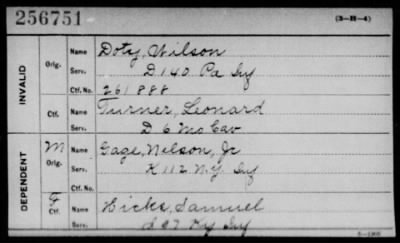 256751 (3-H-4)
INVALID
Orig. Name Doty, Wilson
Serv. D 140 Pa Inf
Ctf. No. 261888
Ctf. Name Turner, Leonard
Serv. D 6 Mo Cav
DEPENDENT
M Orig. Name Gage, Nelson, Jr
Serv. K 112 N.Y. Inf
Ctf. No.
F Ctf. Name Hicks, Samuel
Serv. 97 Ky Inf